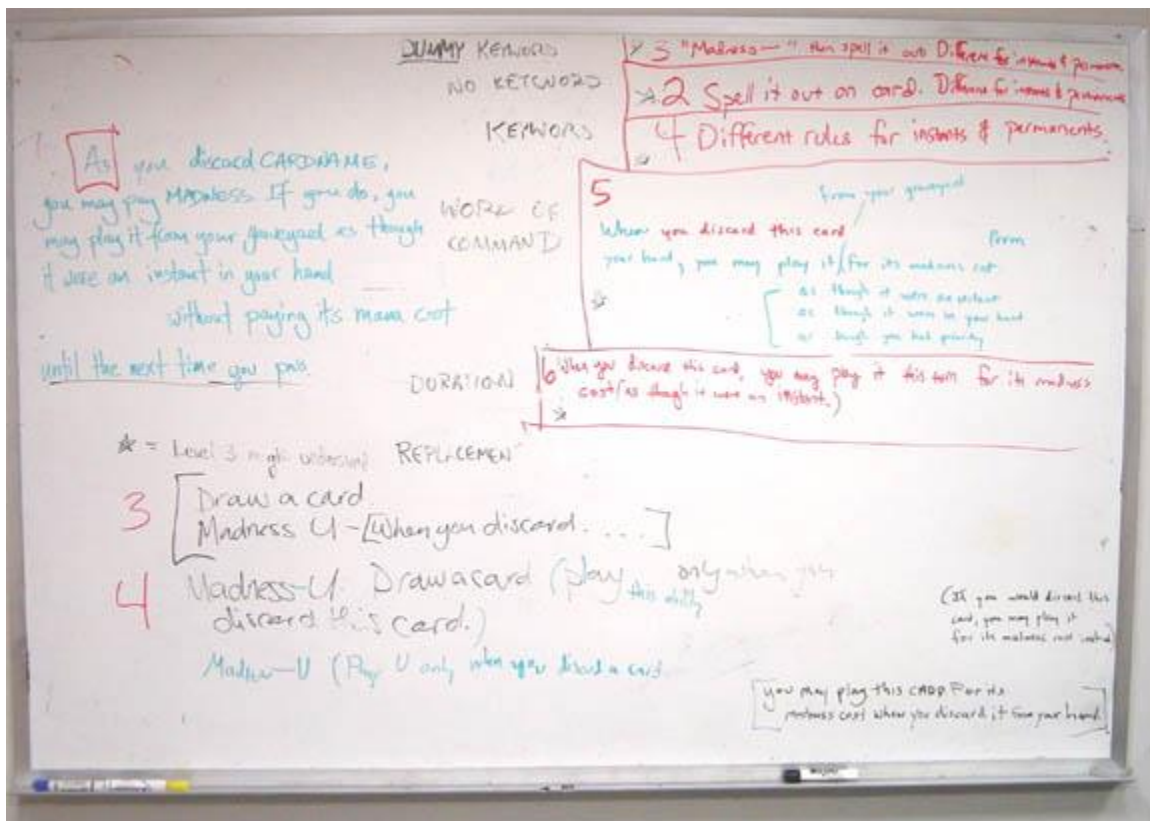 DUMMY KEYWORD
3 "Madness— " then spell it out Different for instants & permanents
NO KEYWORD
2 Spell it out on card. Different for instants & permanents
KEYWORD
4 Different rules for instants & permanents.
As you discard CARDNAME,
you may pay MADNESS. If you do, you
may play it from your graveyard as though
it were an instant in your hand
without paying its mana cost
until the next time you pass.
WORK OF
COMMAND
5
from your graveyard
When you discard this card
from
your hand, you may play it for its madness cost
as though it were an instant
as though it were in your hand
as though you had priority
DURATION
6 When you discard this card, you may play it this turn for its madness
cost (as though it were an instant.)
* = Level 3 might understand
REPLACEMEN
3
Draw a card
Madness U - [When you discard. . . .]
4
Madness-U. Draw a card (play this ability only when you
discard this card.)
Madness—U (Play U only when you discard a card
(If you would discard this
card, you may play it
for its madness cost instead)
[you may play this CARD For its
madness cost when you discard it from your hand]